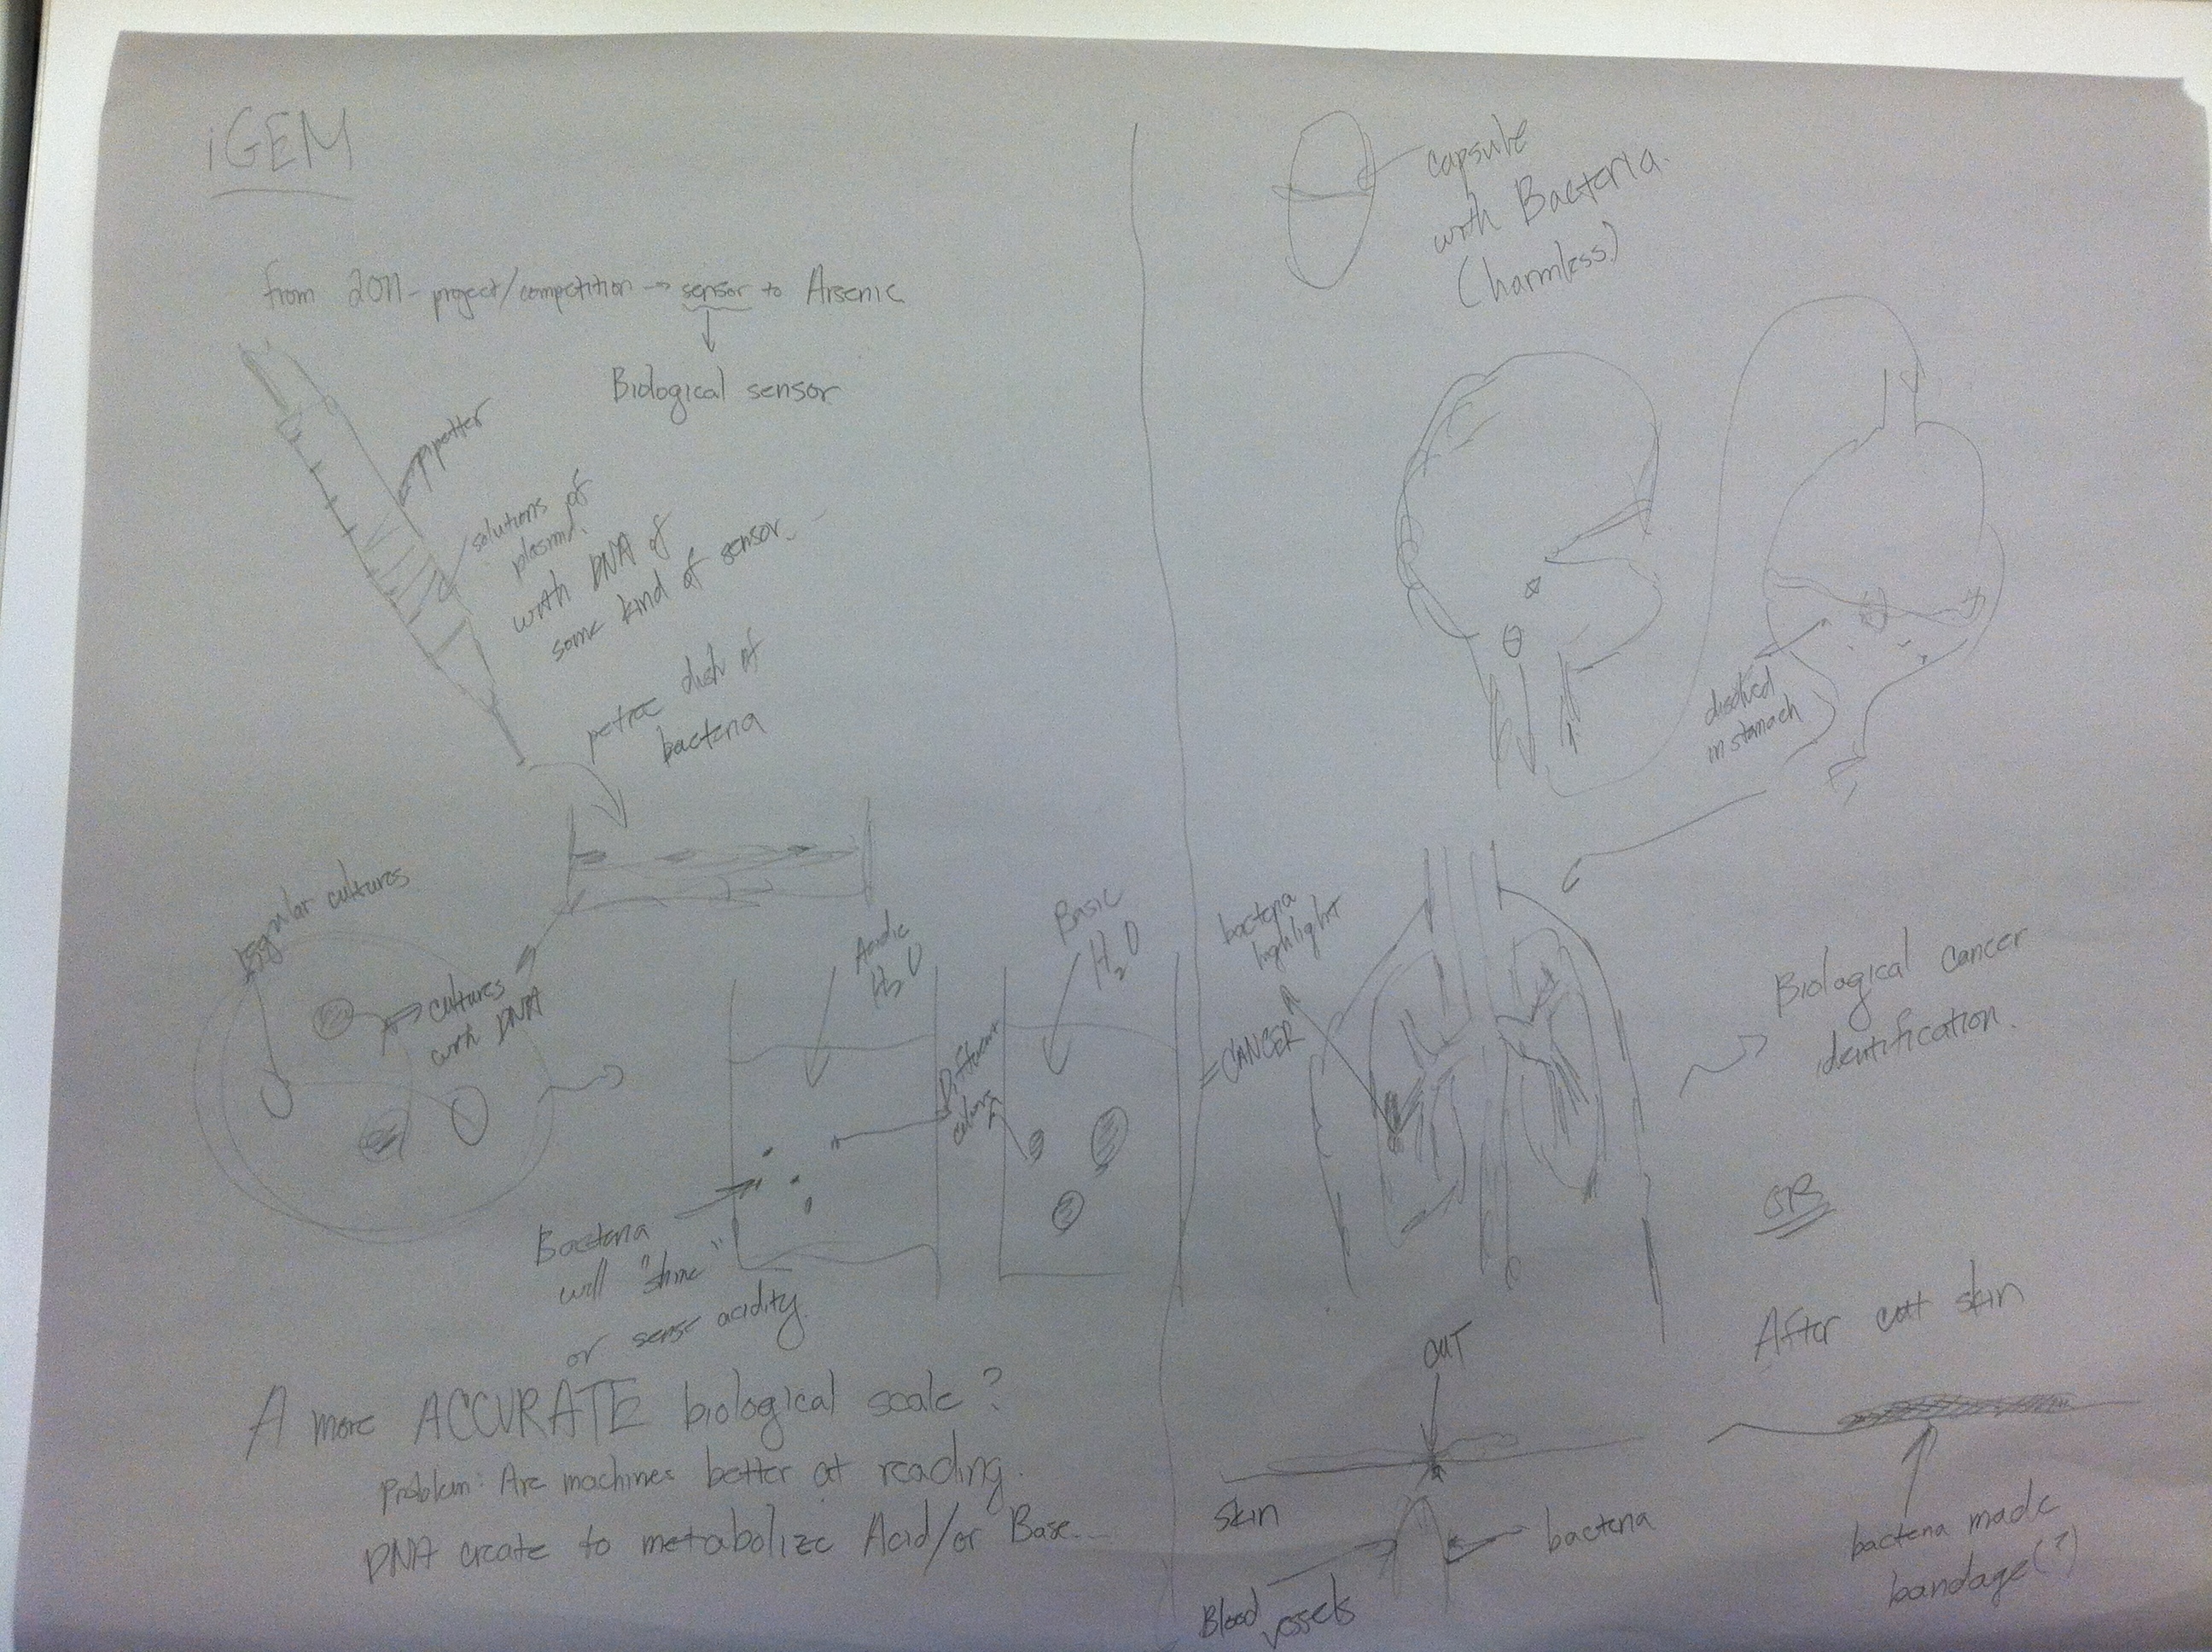 iGEM
from 2011- project/competition → sensor to Arsenic
Biological sensor
pipetter
solutions of
plasmi.
with DNA of
some kind of sensor
petree dish of
bacteria
Regular cultures
cultures
with DNA
Acidic
H₂O
Basic
H₂O
Different
colors
Bacteria
will "shine"
or sense acidity.
A more ACCURATE biological scale?
Problem: Are machines better at reading.
DNA create to metabolize Acid/or Base...
capsule
with Bacteria.
(harmless)
disolved
in stomach
bacteria
highlight
= CANCER
Biological cancer
identification.
OR
CUT
skin
bacteria
Blood vessels
After cutt skin
bacteria made
bandage(?)